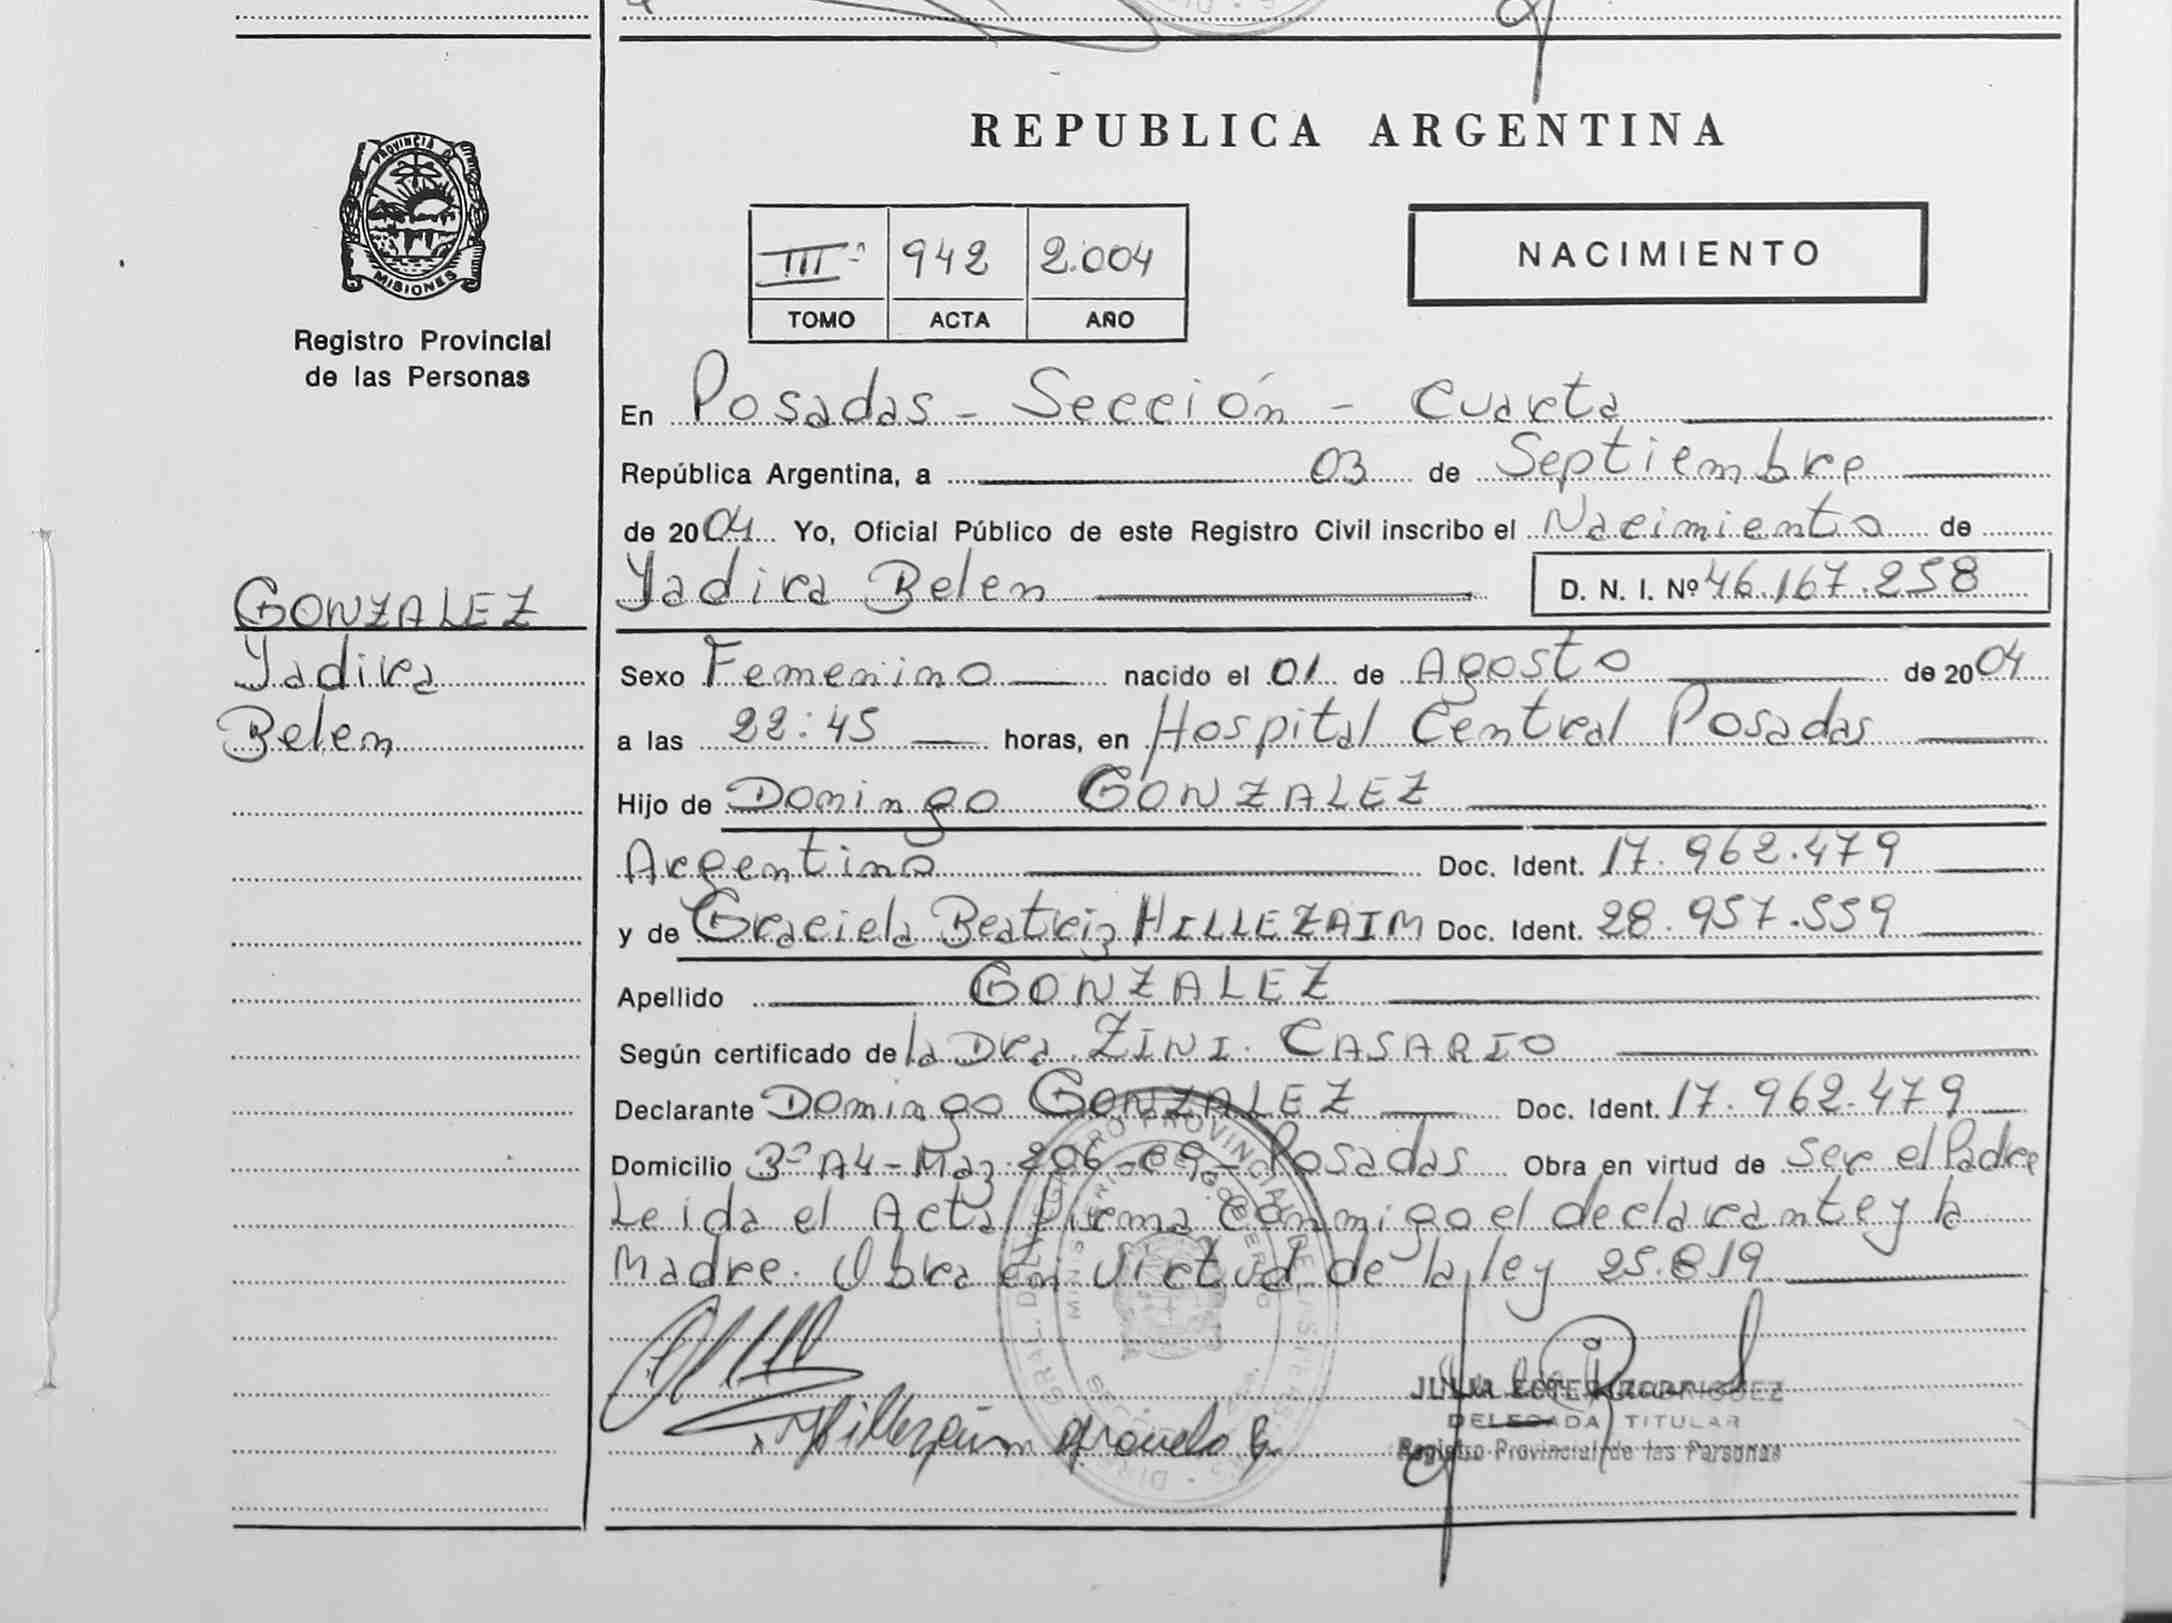 PROVINCIA DE
MISIONES
Registro Provincial
de las Personas
GONZALEZ
Yadira
Belen
REPUBLICA ARGENTINA
III 942 2.004
TOMO ACTA AÑO
NACIMIENTO
En Posadas - Sección - Cuarta
República Argentina, a 03 de Septiembre
de 2004 Yo, Oficial Público de este Registro Civil inscribo el Nacimiento de
Yadira Belen D. N. I. Nº 46.167.258
Sexo Femenino nacido el 01 de Agosto de 2004
a las 22:45 horas, en Hospital Central Posadas
Hijo de Domingo GONZALEZ
Argentino Doc. Ident. 17.962.479
y de Graciela Beatriz HILLEZAIM Doc. Ident. 28.957.559
Apellido GONZALEZ
Según certificado de la Dra. ZINI. CASARIO
Declarante Domingo GONZALEZ Doc. Ident. 17.962.479
Domicilio Bº A4 - Maz. 206 - C9 - Posadas Obra en virtud de ser el Padre
Leida el Acta firma conmigo el declarante y la
Madre. Obra en virtud de la ley 25.819
Hillezaim Graciela B.
DELEGADA TITULAR
Registro Provincial de las Personas